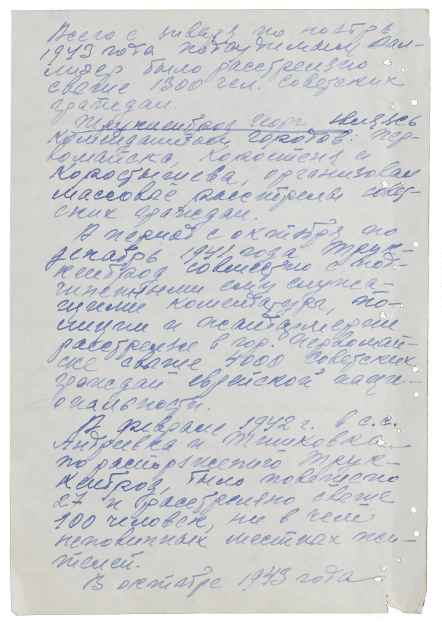 Всего с января по ноябрь
1943 года подсудимым Вал-
лизер было расстреляно
свыше 1300 чел. советских
граждан.
Трукенброд Георг являясь
комендантом городов: Пер-
вомайска, Коростеня и
Коростышева, организовал
массовые расстрелы совет-
ских граждан.
В период с октября по
декабрь 1941 года Трук-
кенброд совместно с под-
чиненными ему служа-
щими комендатура, по-
лиции и жандармерии
расстрелял в гор. Первомай-
ске свыше 4000 советских
граждан еврейской наци-
ональности.
В феврале 1942 г. в с.с.
Андреевка и Тишковка
по распоряжению Трук-
кенброд, было повешено
27 и расстреляно свыше
100 человек, ни в чем
неповинных местных жи-
телей.
В октябре 1943 года